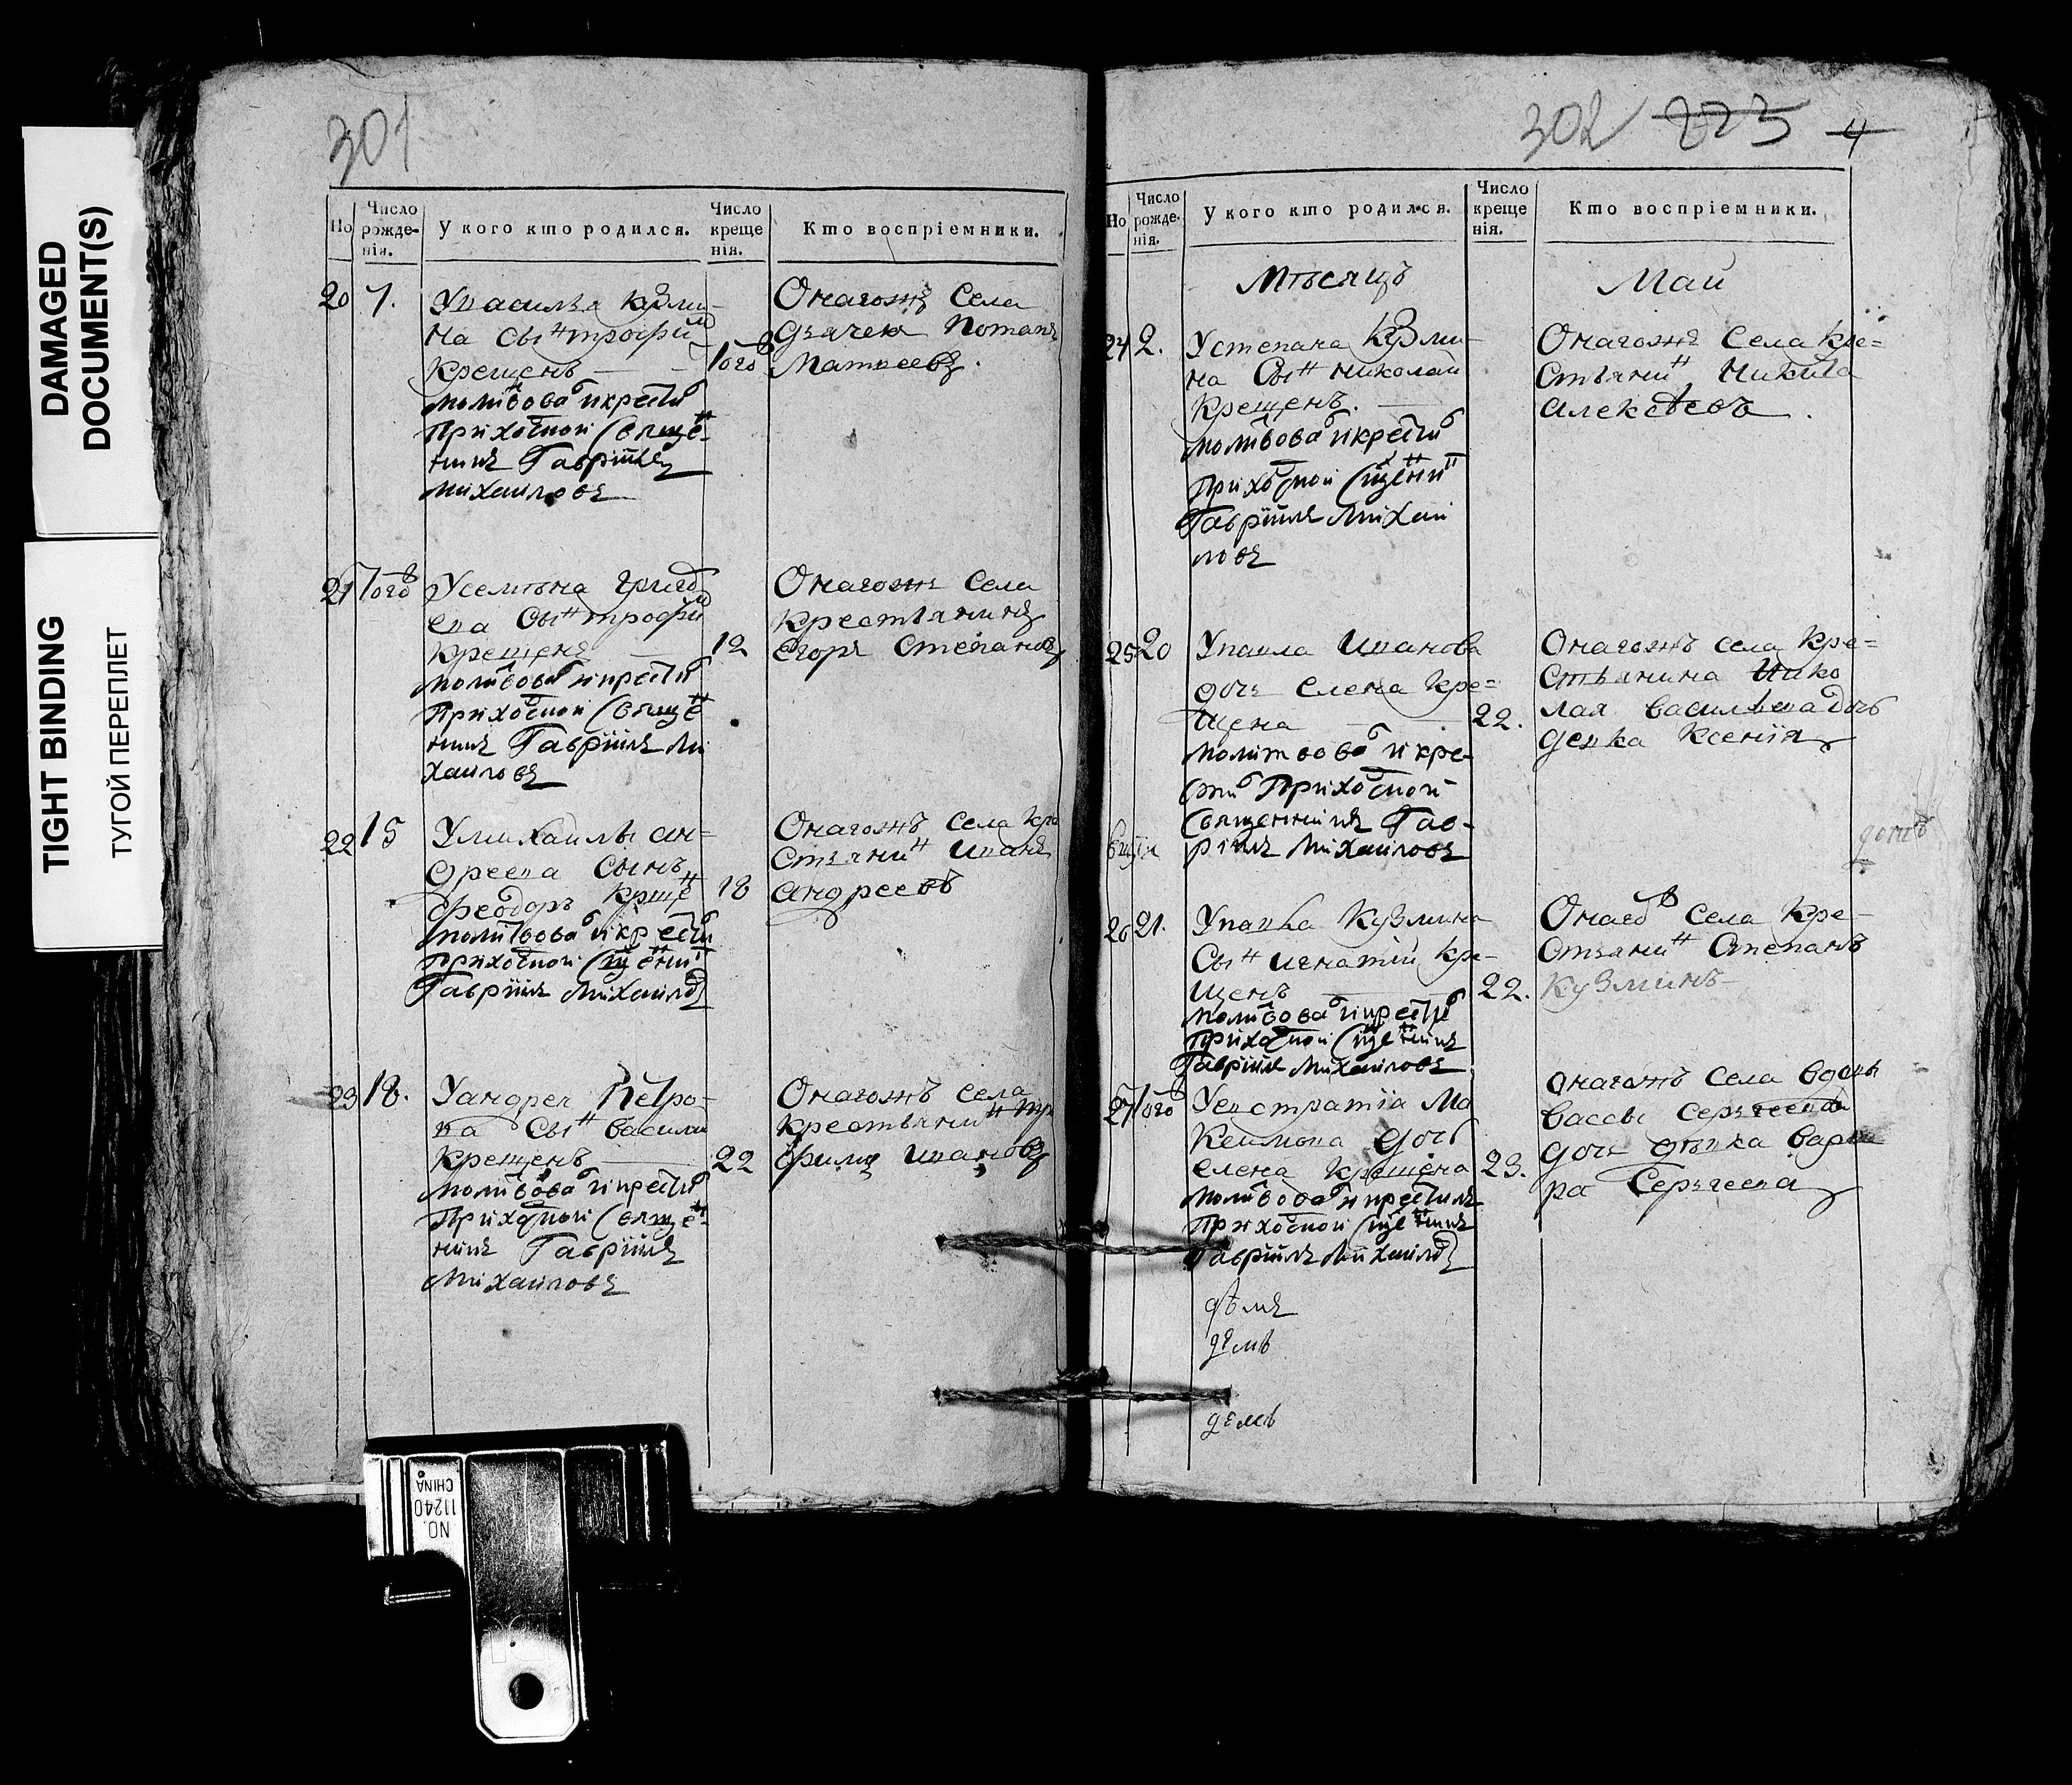 DAMAGED
DOCUMENT(S)
TIGHT BINDING
ТУГОЙ ПЕРЕПЛЕТ
301
Но
Число рожденія.
У кого кто родился.
Число крещенія.
Кто воспріемники.
20 7.
Увасилья кузми-
на сынъ трофим
Крещенъ
молитвовалъ и крестилъ
Приходской священ-
никъ Гавріилъ
Михаиловъ
10го
Онагожъ села
дьячекъ Потапъ
Матвеевъ.
21 10го
Усемиона григор
ева сынъ трофим
Крещенъ
молитвовалъ и крестилъ
Приходской священ-
никъ Гавріилъ Ми
хаиловъ
12
Онагожъ села
крестьянинъ
Егоръ Степановъ
22 15
Умихаилы ан=
дреева сынъ
феодоръ крещенъ
молитвовалъ и крестилъ
Приходской
Гавріилъ Михаиловъ
18
Онагожъ села кре
стьянинъ иванъ
андреевъ
23 18.
Уандрея Петро=
ва сынъ василий
Крещенъ
молитвовалъ и крестилъ
Приходской священ-
никъ Гавріилъ
Михаиловъ
22
Онагожъ села
крестьянинъ тро
фимъ ивановъ
302 223 4
Но
Число рожденія.
У кого кто родился.
Число крещенія.
Кто воспріемники.
Мѣсяцъ Май
24 2.
Устепана Кузми-
на Сынъ николай
Крещенъ.
молитвовалъ и крестилъ
Приходской
Гавріилъ Михаи
ловъ
Онагожъ села кре=
стьянинъ Никита
алексѣевъ.
25 20
Упавла Иванова
дочь елена кре=
щена
молитвовалъ и кре-
стилъ Приходской
Священникъ Гав-
ріилъ Михаиловъ
22.
Онагожъ села кре=
стьянина Нико
лая васильева дочь
девка Ксенія
26 21.
Упавла Кузмина
Сынъ игнатій кре-
щенъ
молитвовалъ и крестилъ
Приходской
Гавріилъ Михаиловъ
22.
Онаго села кре-
стьянинъ Степанъ
Кузминъ
27 10го
Уевстратіа Ма
Кеимова дочь
елена крещена
молитвовалъ и крестилъ
Приходской
Гавріилъ Михаиловъ
23.
онагожъ села вдовы
вассы сергеевы
дочь дѣвка варва
ра Сергеева
NO.
11240
CHINA